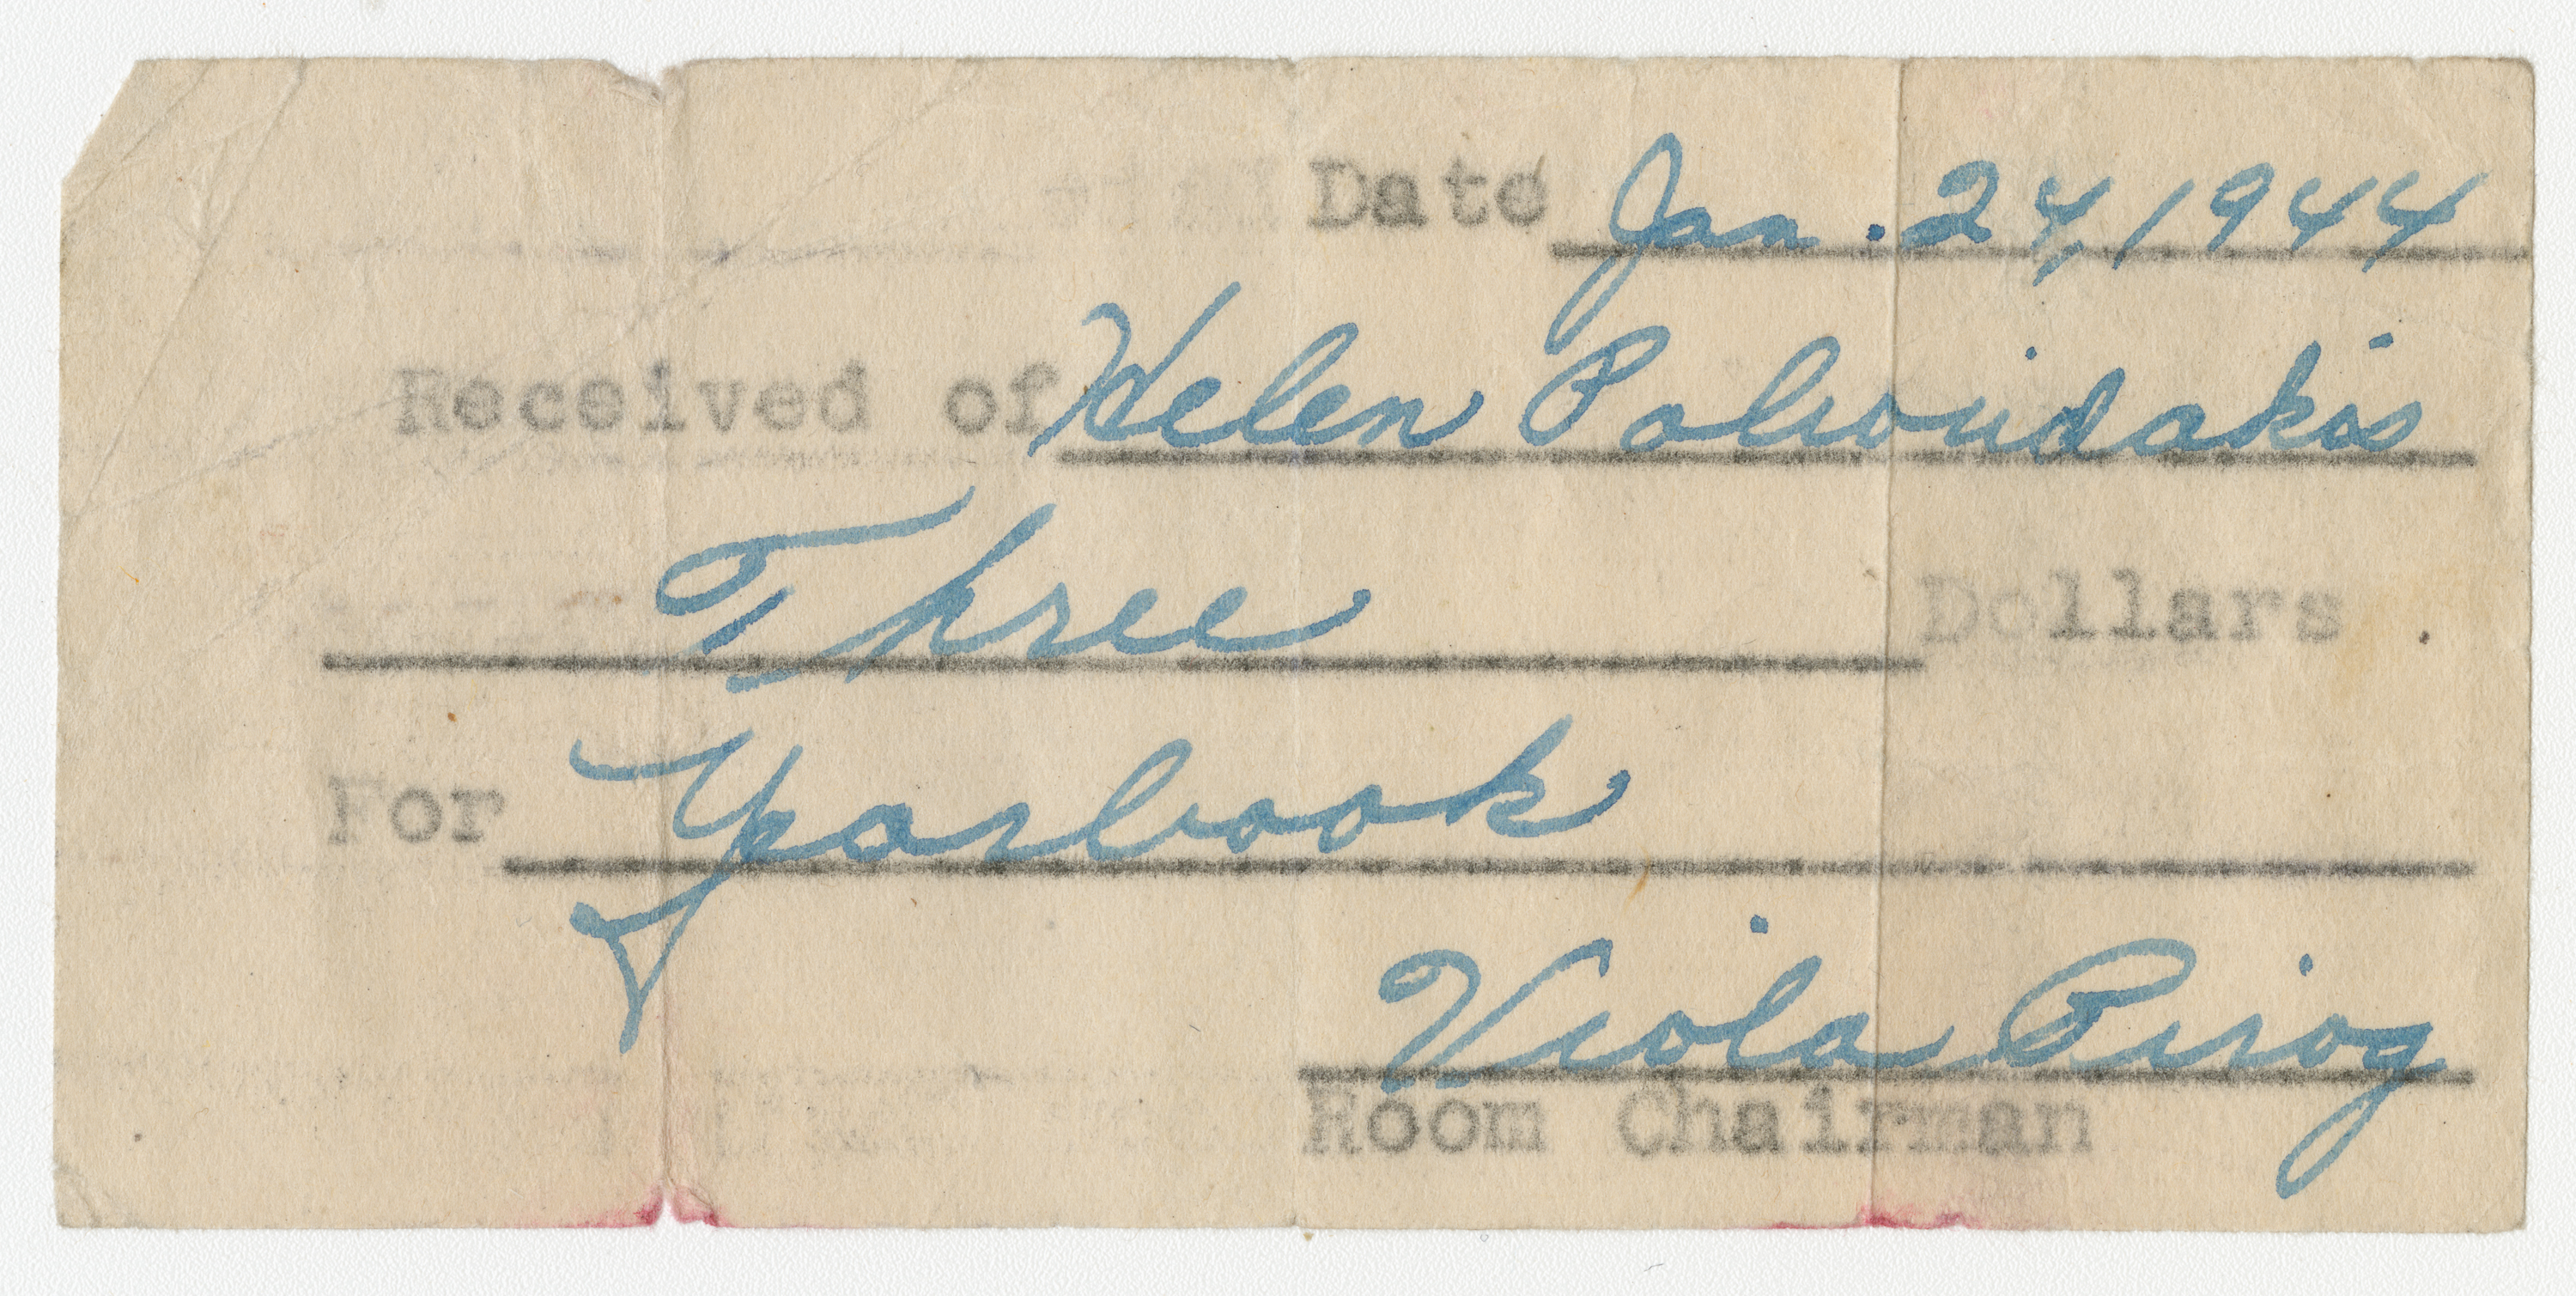 Date Jan. 24, 1944
Received of Helen Polioudakis
Three Dollars
For Yearbook
Viola Pirog
Room Chairman